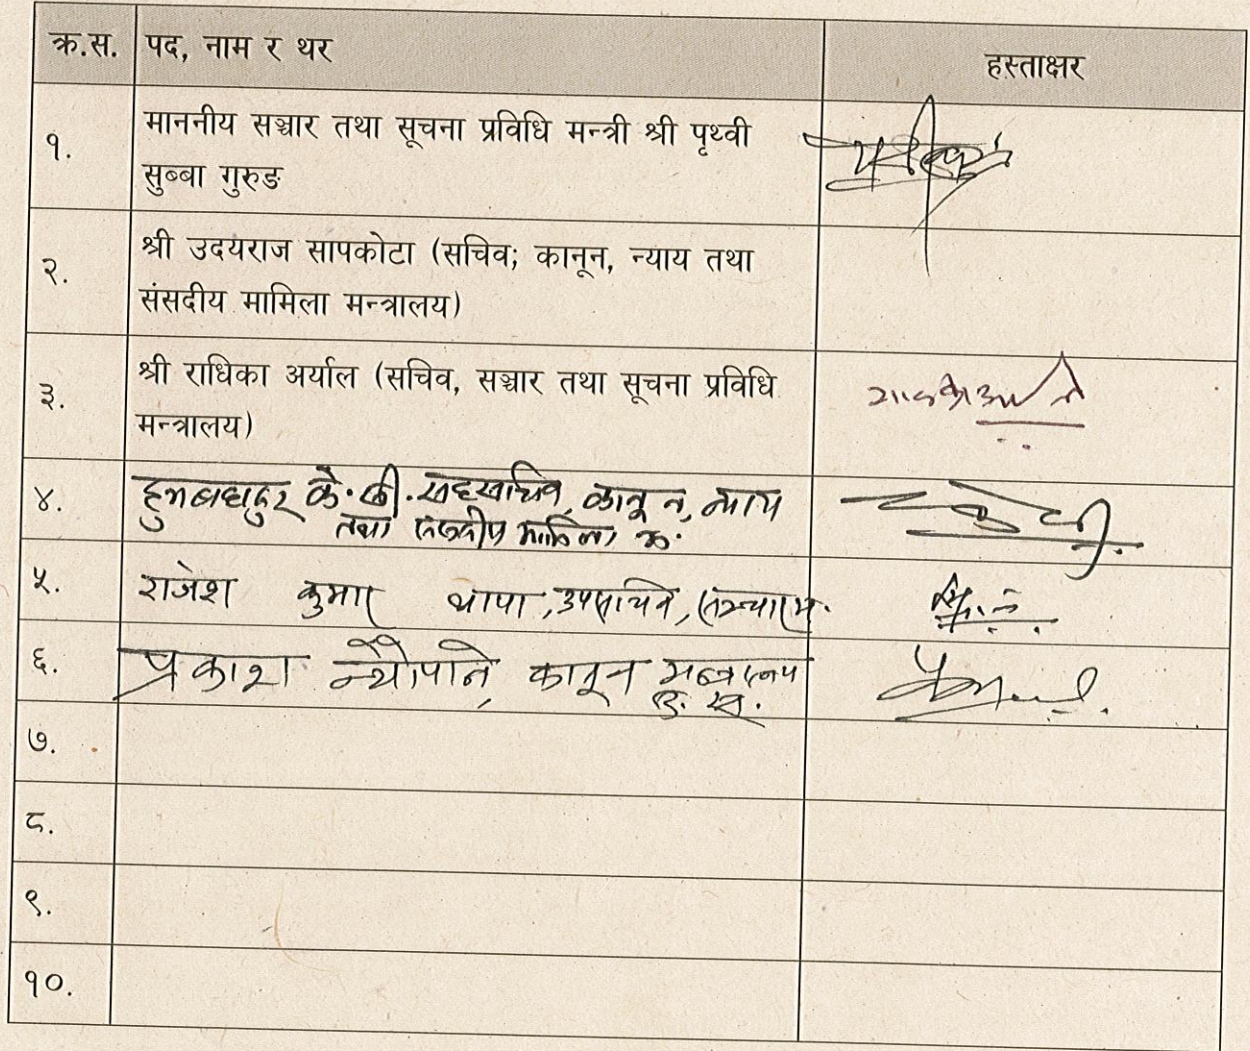 क्र.स. पद, नाम र थर हस्ताक्षर
१. माननीय सञ्चार तथा सूचना प्रविधि मन्त्री श्री पृथ्वी
सुब्बा गुरुङ
२. श्री उदयराज सापकोटा (सचिव; कानून, न्याय तथा
संसदीय मामिला मन्त्रालय)
३. श्री राधिका अर्याल (सचिव, सञ्चार तथा सूचना प्रविधि
मन्त्रालय)
४. हुमबहादुर के.सी. सहसचिव, कानून, न्याय
तथा संसदीय मामिला म.
५. राजेश कुमार थापा, उपसचिव,
६. प्रकाश न्यौपाने, कानून मन्त्रालय
उ. स.
७.
८.
९.
१०.